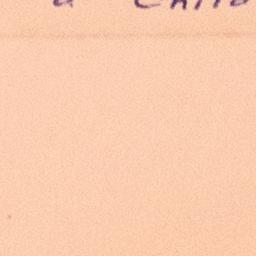 a Child